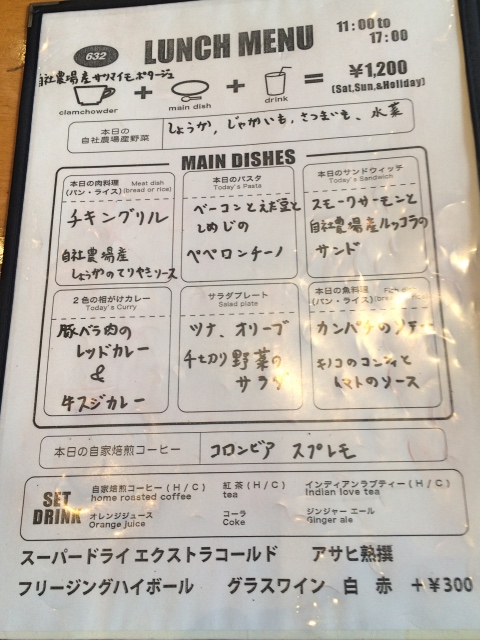 632
LUNCH MENU
11:00 to
17:00
自社農場産サツマイモポタージュ
clamchowder
+
main dish
+
drink
=
¥1,200
(Sat,Sun,&Holiday)
本日の
自社農場産野菜
しょうが、じゃがいも、さつまいも、水菜
MAIN DISHES
本日の肉料理 Meat dish
(パン・ライス)(bread or rice)
チキングリル
自社農場産
しょうがのてりやきソース
本日のパスタ
Today's Pasta
ベーコンとえだ豆と
しめじの
ペペロンチーノ
本日のサンドウィッチ
Today's Sandwich
スモークサーモンと
自社農場産ルッコラの
サンド
2色の相がけカレー
Today's Curry
豚バラ肉の
レッドカレー
&
牛スジカレー
サラダプレート
Salad plate
ツナ、オリーブ
千切り野菜の
サラダ
本日の魚料理
(パン・ライス)
カンパチのソテー
キノコのコンフィと
トマトのソース
本日の自家焙煎コーヒー
コロンビア スプレモ
SET
DRINK
自家焙煎コーヒー(H/C)
home roasted coffee
紅茶(H/C)
tea
インディアンラブティー(H/C)
Indian love tea
オレンジジュース
Orange juice
コーラ
Coke
ジンジャーエール
Ginger ale
スーパードライエクストラコールド アサヒ熟撰
フリージングハイボール グラスワイン 白 赤 +¥300